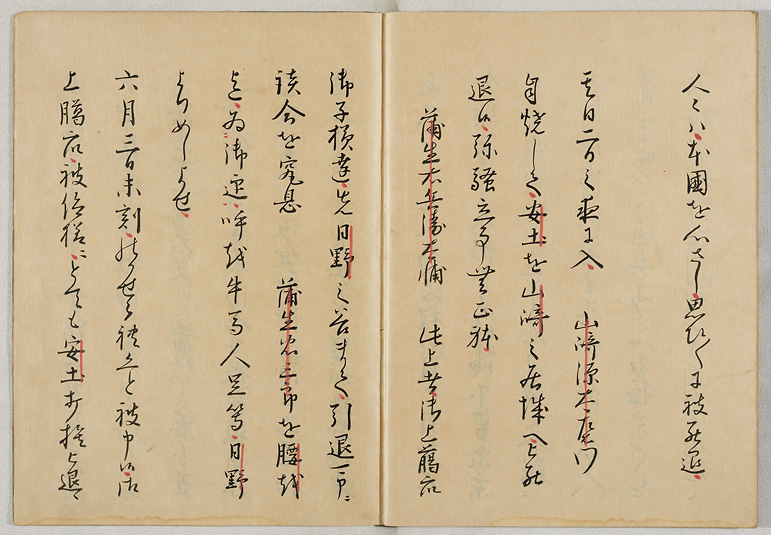 人々ハ本國を心さし思ひ〱に被罷退
其日二日之夜に入　山崎源太左衛門
自焼して安土を山崎之居城へ罷
退候弥騒立事無正躰
蒲生右兵衛大輔　此上者御上臈衆
御子様達先日野之谷まて引退可申ニ
談合を究息　蒲生忠三郎を腰越
迄為御迎呼越牛馬人足等日野
よりめしよせ
六月三日未刻のかせられ候へと被申候御
上臈衆被仰様ニとても安土打捨